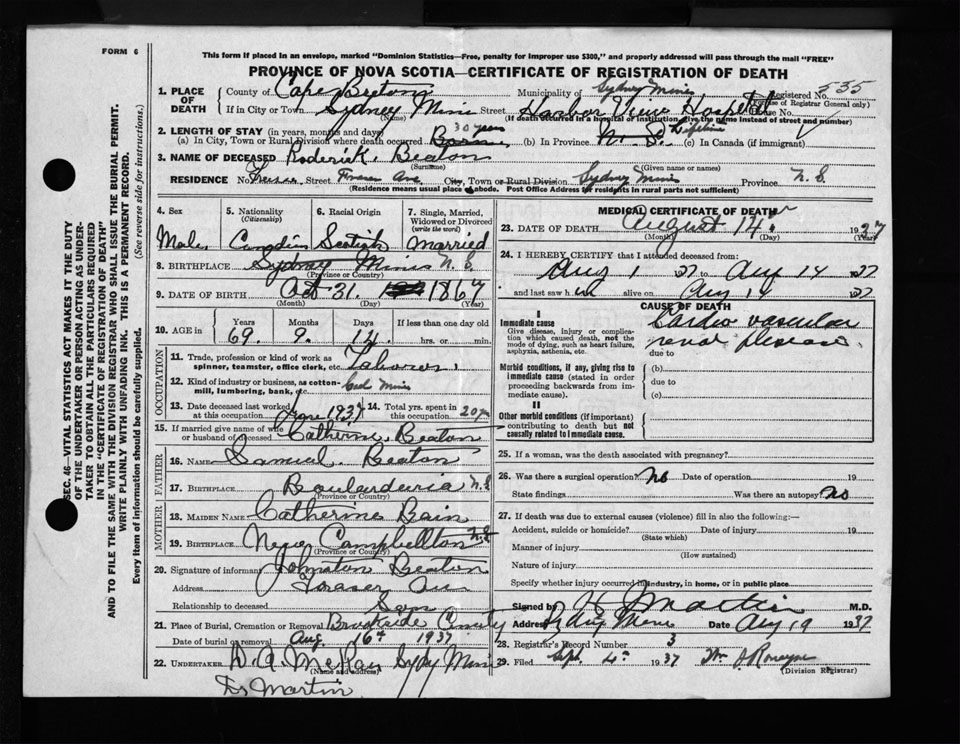 FORM 6
This form if placed in an envelope, marked "Dominion Statistics—Free, penalty for improper use $300," and properly addressed will pass through the mail "FREE"
PROVINCE OF NOVA SCOTIA—CERTIFICATE OF REGISTRATION OF DEATH
SEC. 46—VITAL STATISTICS ACT MAKES IT THE DUTY
OF THE UNDERTAKER OR PERSON ACTING AS UNDER-
TAKER TO OBTAIN ALL THE PARTICULARS REQUIRED
IN THE "CERTIFICATE OF REGISTRATION OF DEATH"
AND TO FILE THE SAME WITH THE DIVISION REGISTRAR WHO SHALL ISSUE THE BURIAL PERMIT.
WRITE PLAINLY WITH UNFADING INK. THIS IS A PERMANENT RECORD.
Every item of information should be carefully supplied. (See reverse side for instructions.)
1. PLACE OF DEATH County of Cape Breton Municipality of Sydney Mines Registered No. 535
(For use of Registrar General only)
If in City or Town Sydney Mines Street Harbor View Hospital House No.
(Name) (If death occurred in a hospital or institution, give the name instead of street and number)
2. LENGTH OF STAY (in years, months and days)
(a) In City, Town or Rural Division where death occurred 30 years (b) In Province N. S. Lifetime (c) In Canada (if immigrant)
3. NAME OF DECEASED Roderick Beaton
(Surname) (Given name or names)
RESIDENCE Street Fraser Ave City, Town or Rural Division Sydney Mines Province N. S.
(Residence means usual place of abode. Post Office Address for residents in rural parts not sufficient)
4. Sex 5. Nationality (Citizenship) 6. Racial Origin 7. Single, Married, Widowed or Divorced (write the word)
Male Canadian Scotish Married
8. BIRTHPLACE Sydney Mines N. S.
(Province or Country)
9. DATE OF BIRTH Oct 31. 1867
(Month) (Day) (Year)
10. AGE in Years Months Days If less than one day old
69. 9. 14. hrs. or min.
OCCUPATION
11. Trade, profession or kind of work as spinner, teamster, office clerk, etc. Laborer.
12. Kind of industry or business, as cotton-mill, lumbering, bank, etc. Coal Mines
13. Date deceased last worked at this occupation 1937 14. Total yrs. spent in this occupation 20 yrs
15. If married give name of wife or husband of deceased Catherine Beaton
FATHER
16. NAME Samuel Beaton
17. BIRTHPLACE Boularderie N. S.
(Province or Country)
MOTHER
18. MAIDEN NAME Catherine Bain
19. BIRTHPLACE New Campbellton N. S.
(Province or Country)
20. Signature of informant Johnston Beaton
Address Fraser Ave
Relationship to deceased Son
21. Place of Burial, Cremation or Removal Brookside Cemetery
Date of burial or removal Aug. 16th 1937
22. UNDERTAKER D. A. McKay Sydney Mines
(Name and address)
Dr Martin
MEDICAL CERTIFICATE OF DEATH
23. DATE OF DEATH August 14. 1937
(Month) (Day) (Year)
24. I HEREBY CERTIFY that I attended deceased from:
Aug 1 37 to Aug 14 1937
and last saw him alive on Aug 14 37
CAUSE OF DEATH
I
Immediate cause
Give disease, injury or complication which caused death, not the mode of dying, such as heart failure, asphyxia, asthenia, etc.
Cardio vascular
renal disease.
due to
Morbid conditions, if any, giving rise to immediate cause (stated in order proceeding backwards from immediate cause).
(b)
due to
(c)
II
Other morbid conditions (if important) contributing to death but not causally related to immediate cause.
25. If a woman, was the death associated with pregnancy?
26. Was there a surgical operation? No Date of operation 19
State findings Was there an autopsy? No
27. If death was due to external causes (violence) fill in also the following:—
Accident, suicide or homicide? Date of injury 19
(State which)
Manner of injury
(How sustained)
Nature of injury
Specify whether injury occurred in industry, in home, or in public place
Signed by H Martin M.D.
Address Sydney Mines Date Aug 19 1937
28. Registrar's Record Number 3
29. Filed Sept. 4th 1937
(Division Registrar)